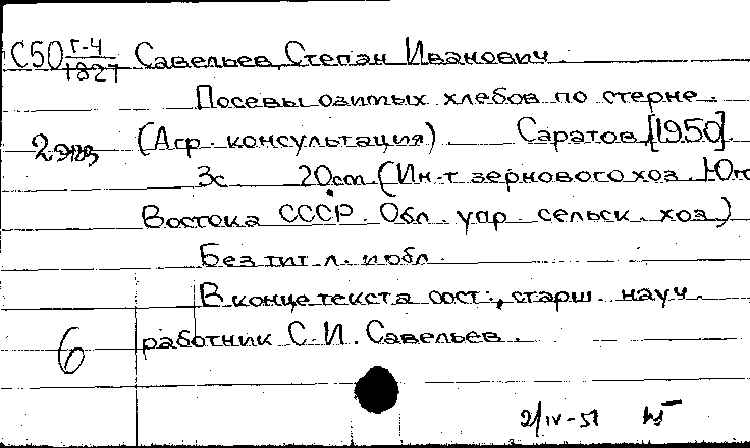 С50 г-4/1827 Савельев, Степан Иванович.
Посевы озимых хлебов по стерне.
2экз (Агр. консультация). Саратов, [1950].
3с. 20см. (Ин-т зернового хоз. Юго
Востока СССР. Обл. упр. сельск. хоз.)
Без тит. л. и обл.
В конце текста сост:, старш. науч.
6 работник С. И. Савельев.
2/IV-51